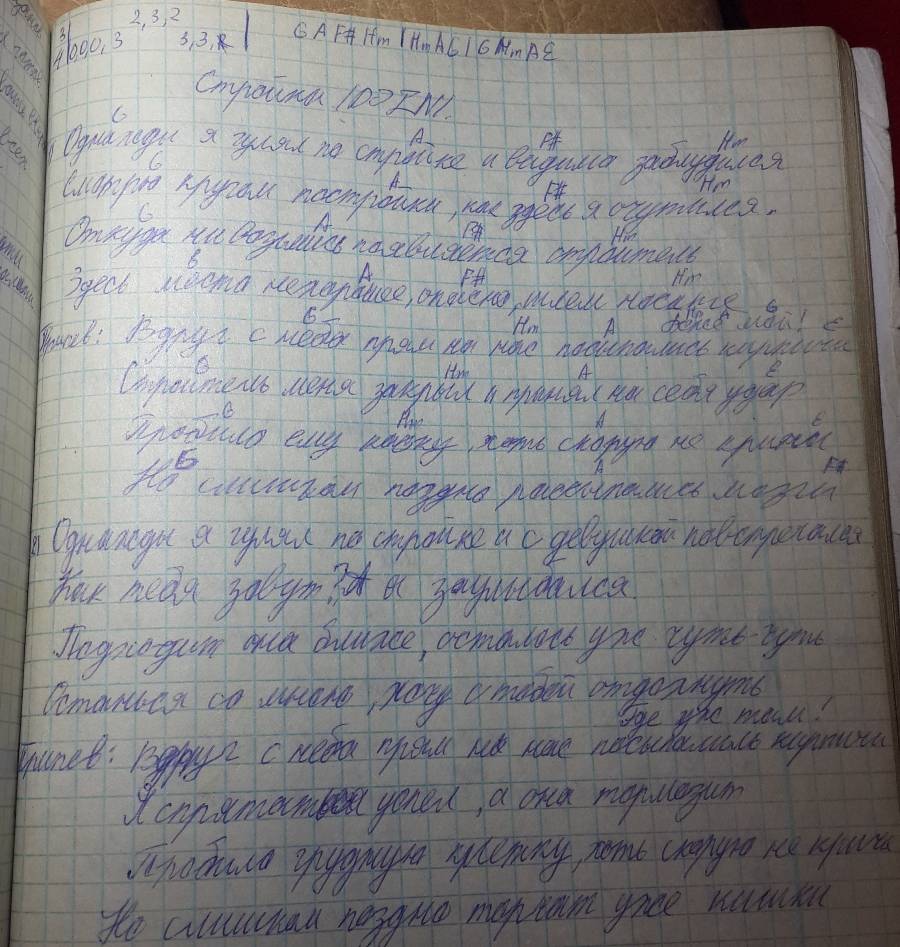 3/4 0,0,0,3 2,3,2 3,3, | G A F# Hm | Hm A G | G Hm A E
Стройка
G A F# Hm
1) Однажды я гулял по стройке и видимо заблудился
G A F# Hm
Смотрю кругом постройки, как здесь я очутился.
G A F# Hm
Откуда ни возьмись появляется строитель
G A F# Hm
Здесь места нехорошее, опасно, шлем носите
Боже мой!
G Hm A E
Припев: Вдруг с неба прям на нас посыпались кирпичи
G Hm A E
Строитель меня закрыл и принял на себя удар
G Hm A E
Пробило ему каску, хоть скорую не кричи
G A F#
Но слишком поздно рассыпались мозги
2) Однажды я гулял по стройке и с девушкой повстречался
Как тебя зовут? А я заулыбался.
Подходит она ближе, осталось уж чуть-чуть
Останься со мною, хочу с тобой отдохнуть
Где уж там!
Припев: Вдруг с неба прям на нас посыпались кирпичи
Я спрятаться успел, а она тормозит
Пробило грудную клетку, хоть скорую не крича
Но слишком поздно торчат уже кишки